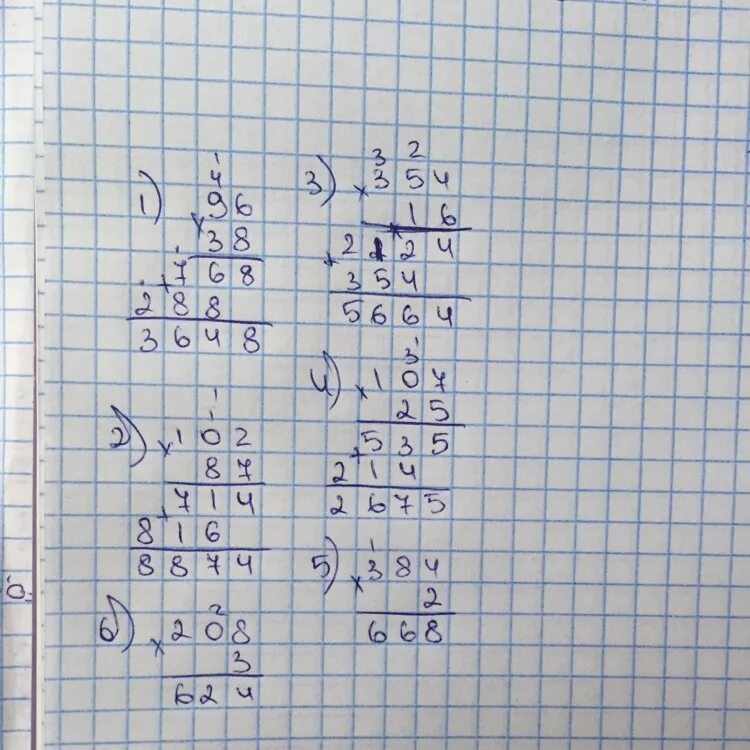 1)
1
4
× 96
38
+ 768
288
3648
2)
1
1
× 102
87
+ 714
816
8874
6)
2
× 208
3
624
3)
3 2
× 354
16
+ 2124
354
5664
4)
1
3
× 107
25
+ 535
214
2675
5)
1
× 384
2
668